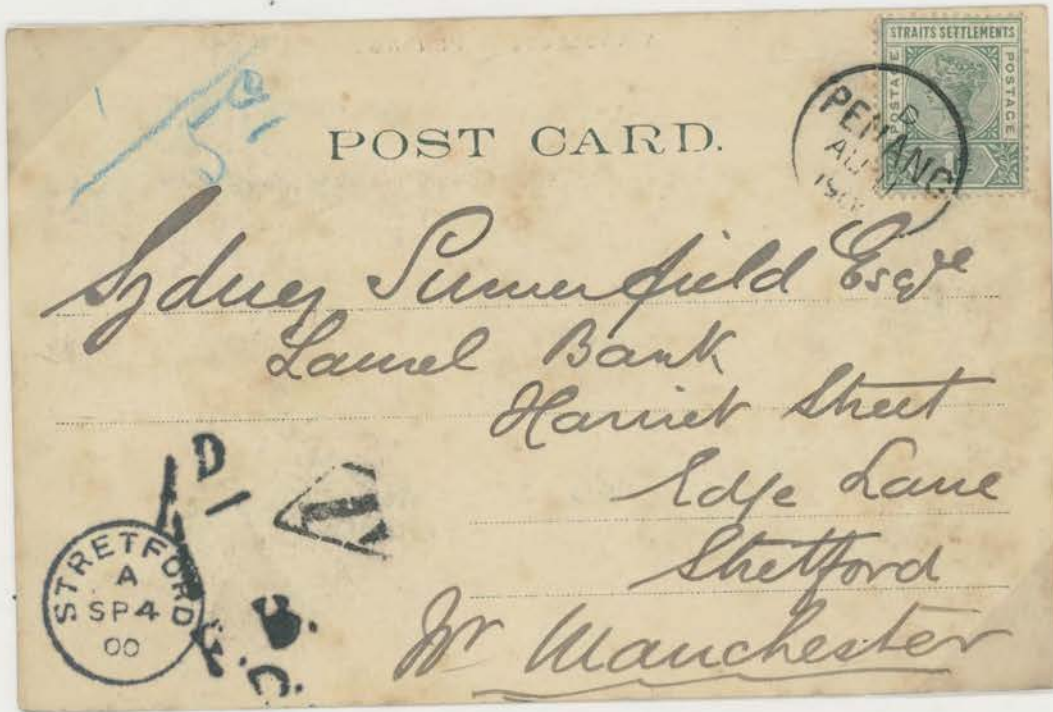 STRAITS SETTLEMENTS
POSTAGE POSTAGE
PENANG
D
AU
POST CARD.
5c
Sydney Summerfield Esqre
Laurel Bank
Harriet Street
Edge Lane
Stretford
Nr Manchester
1D
T
STRETFORD
A
SP 4
00